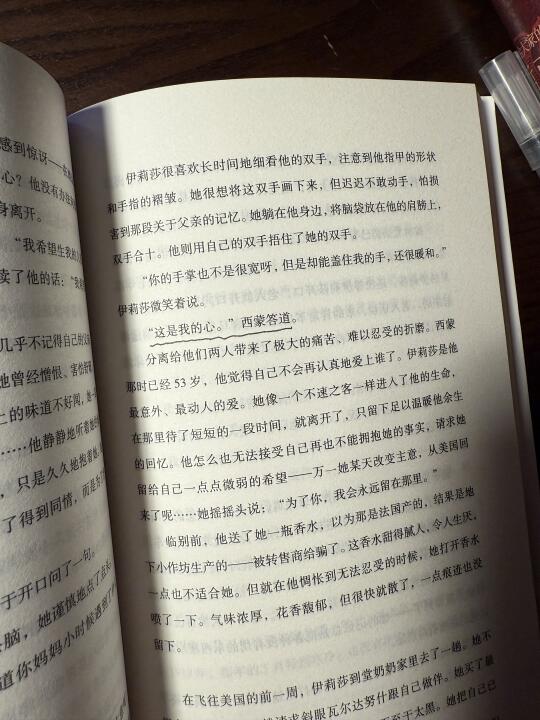 感到惊讶——
心？他没有
身离开。
“我希望生我的
读了他的话：“我
几乎不记得自己的
他曾经憎恨、害怕
上的味道不好闻，
……他静静地听着她
，只是久久地抱着她
了得到同情，而是为
于开口问了一句。
头脑，她谨慎地点了点头
道你妈妈小时候遇到了
伊莉莎很喜欢长时间地细看他的双手，注意到他指甲的形状
和手指的褶皱。她很想将这双手画下来，但迟迟不敢动手，怕损
害到那段关于父亲的记忆。她躺在他身边，将脑袋放在他的肩膀上，
双手合十。他则用自己的双手捂住了她的双手。
“你的手掌也不是很宽呀，但是却能盖住我的手，还很暖和。”
伊莉莎微笑着说。
“这是我的心。”西蒙答道。
分离给他们两人带来了极大的痛苦、难以忍受的折磨。西蒙
那时已经 53 岁，他觉得自己不会再认真地爱上谁了。伊莉莎是他
最意外、最动人的爱。她像一个不速之客一样进入了他的生命，
在那里待了短短的一段时间，就离开了，只留下足以温暖他余生
的回忆。他怎么也无法接受自己再也不能拥抱她的事实，请求她
留给自己一点点微弱的希望——万一她某天改变主意，从美国回
来了呢……她摇摇头说：“为了你，我会永远留在那里。”
临别前，他送了她一瓶香水，以为那是法国产的，结果是地
下小作坊生产的——被转售商给骗了。这香水甜得腻人，令人生厌，
一点也不适合她。但就在他惆怅到无法忍受的时候，她打开香水
喷了一下。气味浓厚，花香馥郁，但很快就散了，一点痕迹也没
留下。
在飞往美国的前一周，伊莉莎到堂奶奶家里去了一趟。她不
请求斜眼瓦尔达努什跟自己做伴。她买了最
至于太黑。她把自己已